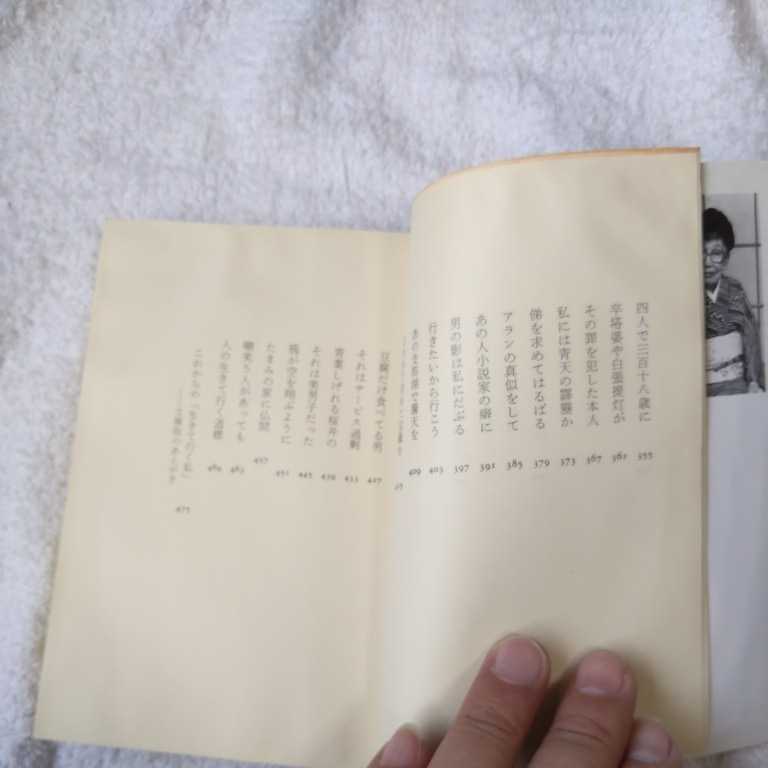 四人で三百十八歳に 355
卒塔婆や白張提灯が 361
その罪を犯した本人 367
私には青天の霹靂か 373
俤を求めてはるばる 379
アランの真似をして 385
あの人小説家の癖に 391
男の影は私にだぶる 397
行きたいから行こう 403
露天を 409
豆腐だけ食べてる男 427
それはサービス過剰 433
青葉しげれる桜井の 439
それは美男子だった 445
鴉が空を翔ぶように 451
たまみの家に仏間 457
嘲笑う人があっても 463
人の生きて行く道標 469
これからの「生きて行く私」 475